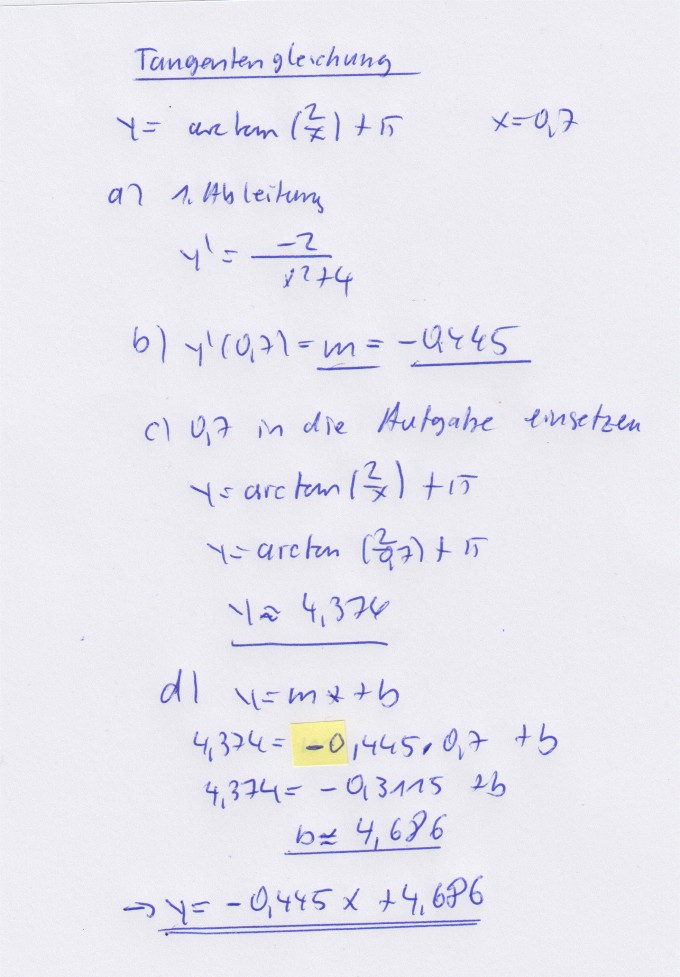 Tangentengleichung
y = arctan (2/x) + π x=0,7
a) 1. Ableitung
y' = -2/(x²+4)
b) y'(0,7) = m = -0,445
c) 0,7 in die Aufgabe einsetzen
y = arctan (2/x) + π
y = arctan (2/0,7) + π
y ≈ 4,374
d) y = mx + b
4,374 = -0,445 · 0,7 + b
4,374 = -0,3115 + b
b ≈ 4,686
→ y = -0,445 x + 4,686